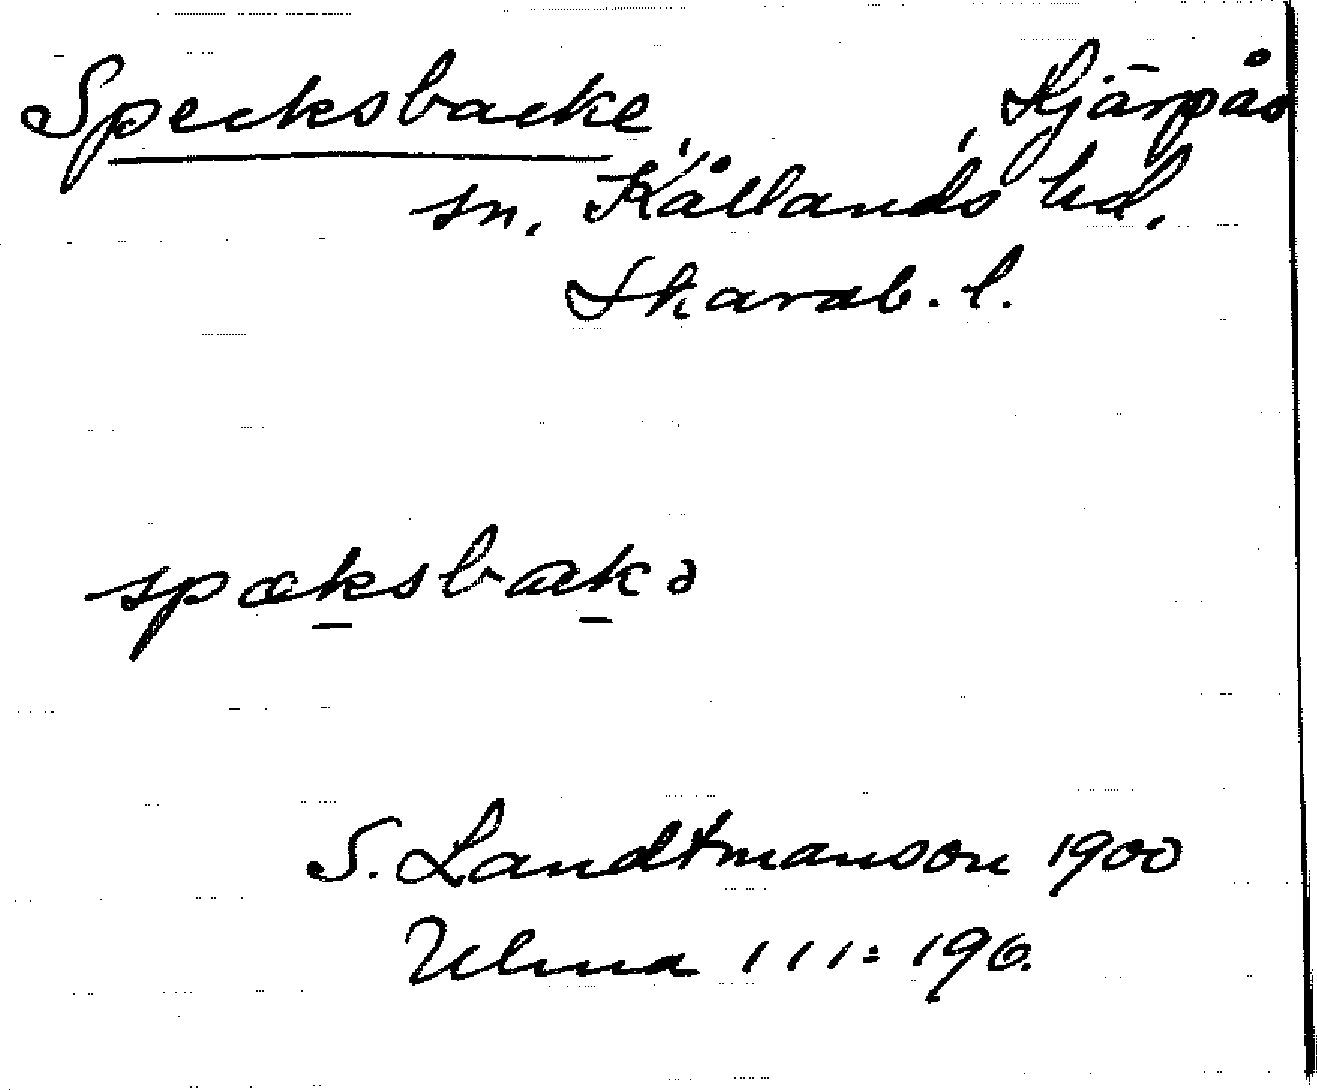 Specksbacke, Kjärpås
sn, Kållands hd,
Skarab. l.
spæksbakə
S. Landtmanson 1900
Ulma 111:196.